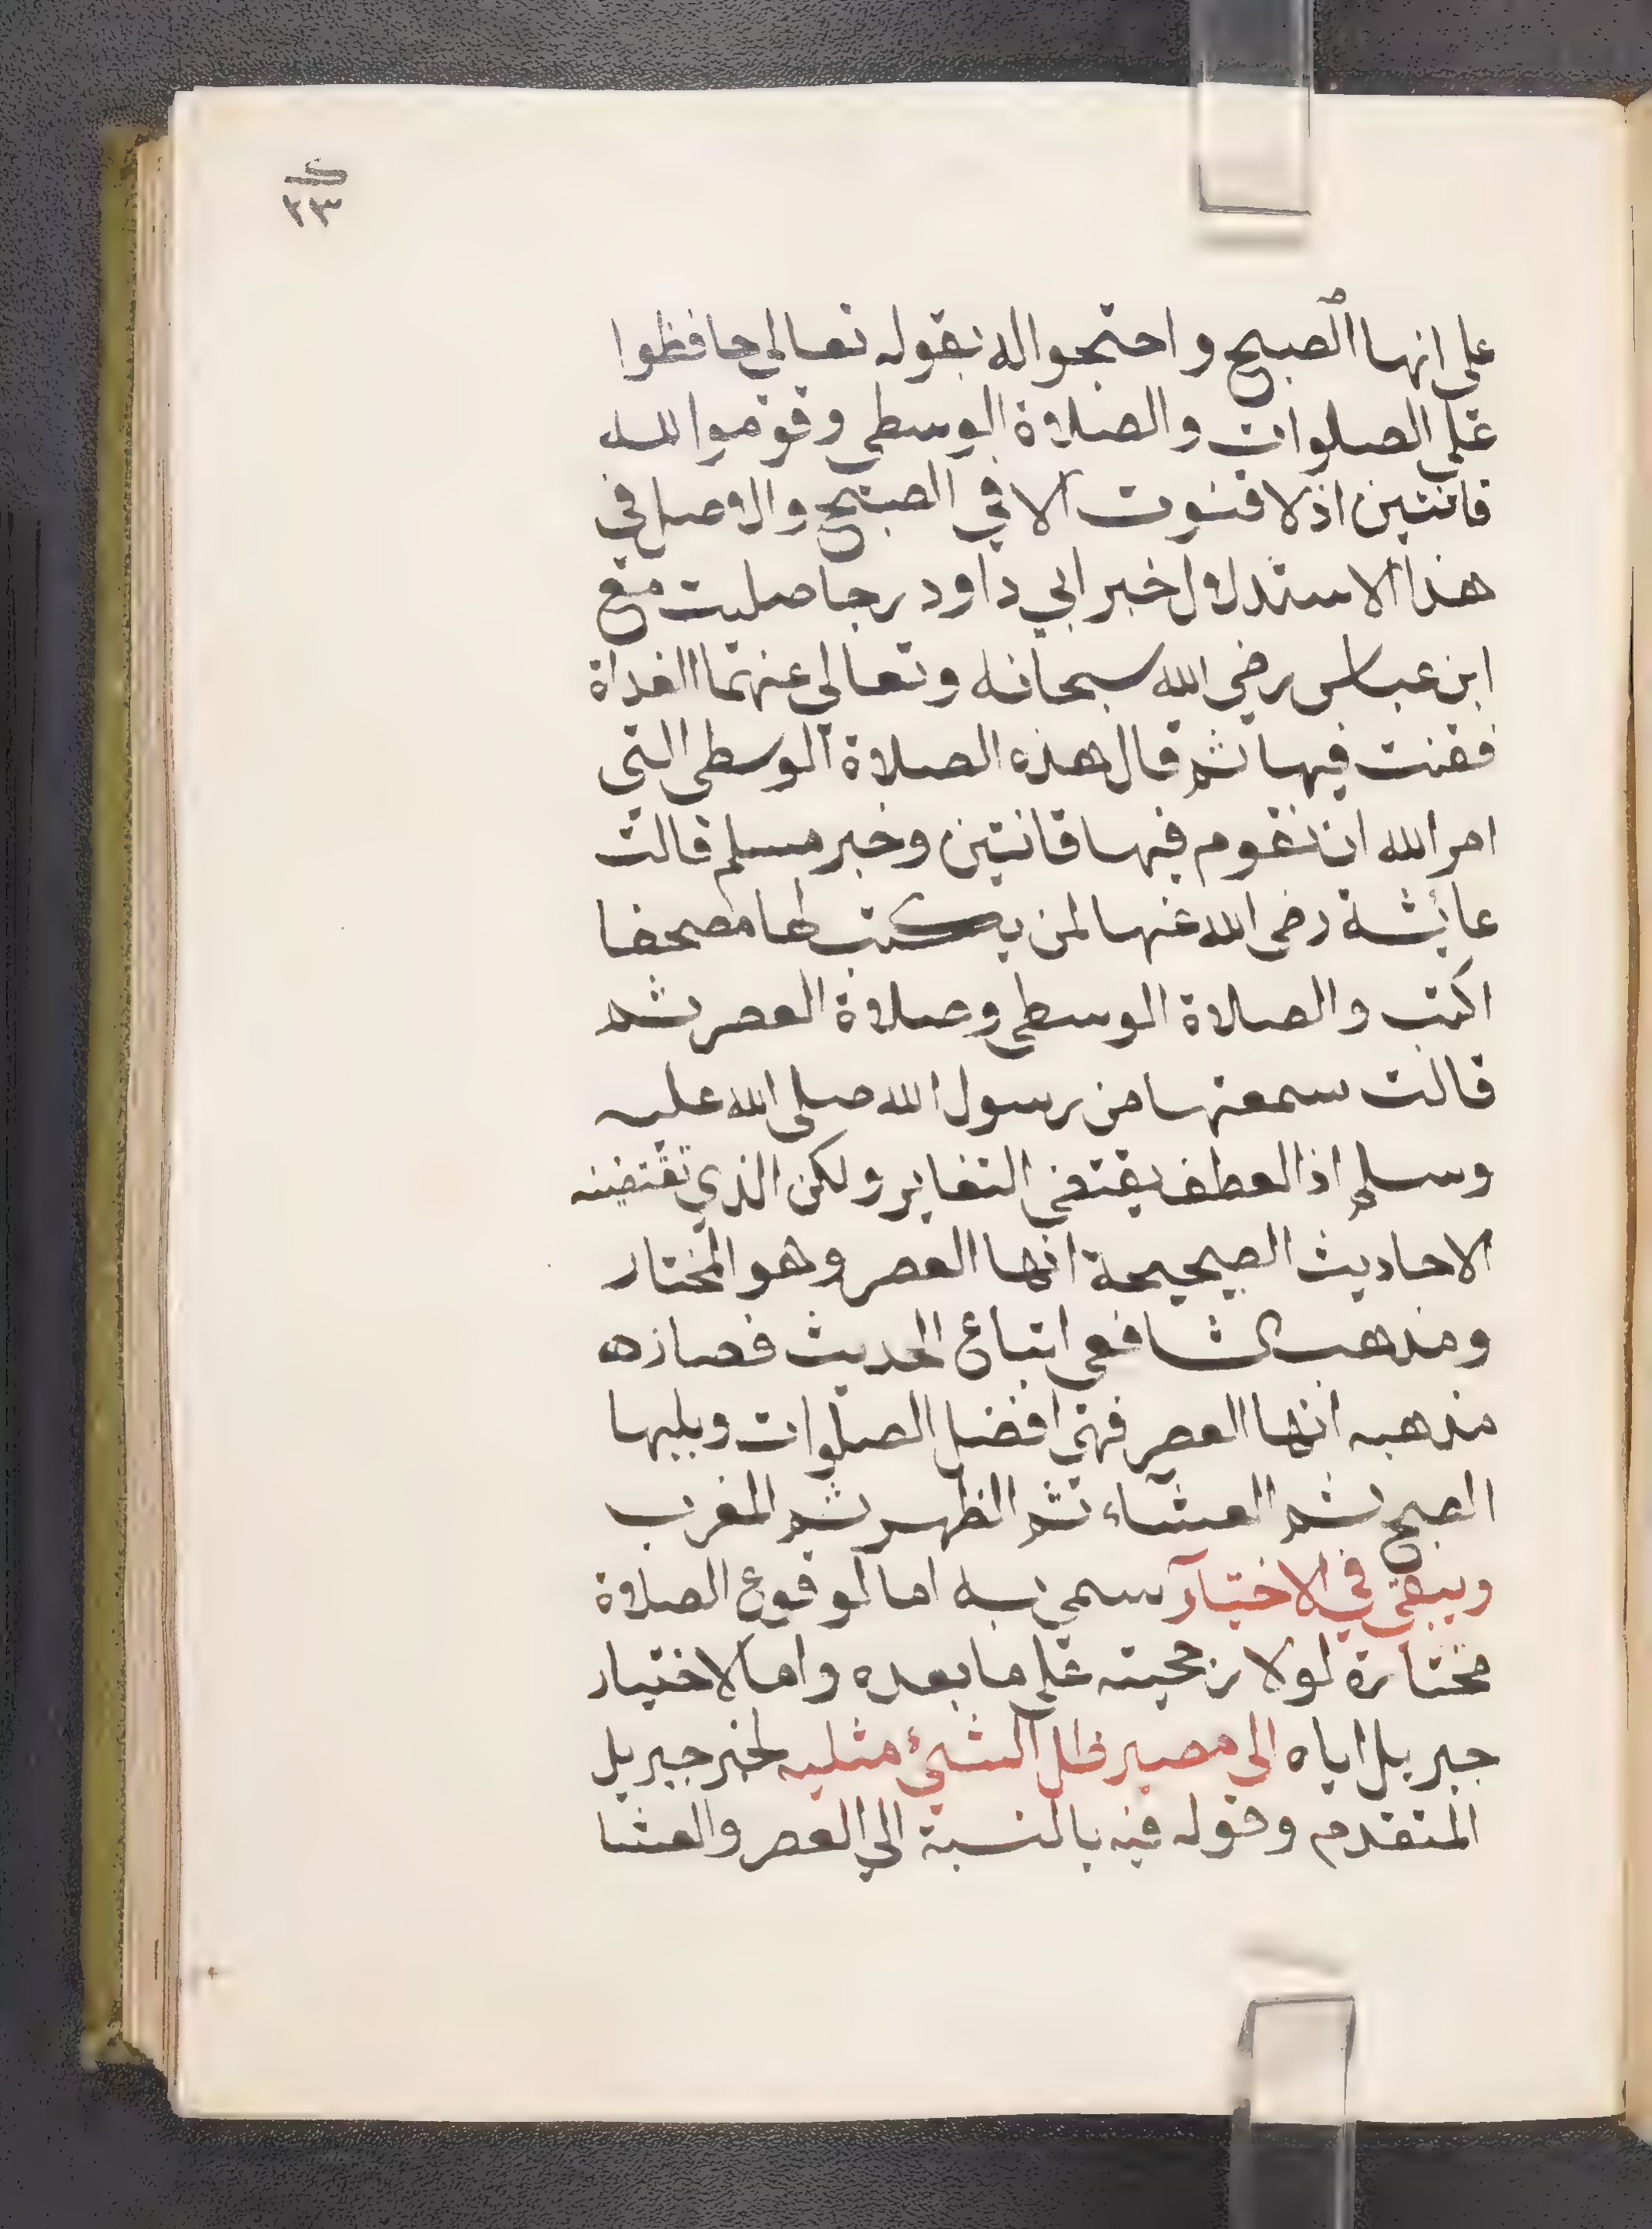 ك
٢٣
على انها الصبح واحتجوا له بقوله تعالى حافظوا
على الصلوات والصلاة الوسطى وقوموا لله
قانتين اذ لا قنوت الا في الصبح والاصل في
هذا الاستدلال خبر ابي داود رجا صليت مع
ابن عباس رضي الله سبحانه وتعالى عنهما الغداة
فقنت فيها ثم قال هذه الصلاة الوسطى التي
امر الله ان نقوم فيها قانتين وخبر مسلم قالت
عائشة رضى الله عنها لمن يكتب لها مصحفا
اكتب والصلاة الوسطى وصلاة العصر ثم
قالت سمعتها من رسول الله صلى الله عليه
وسلم اذ العطف يقتضي التغاير ولكن الذي تقتضيه
الاحاديث الصحيحة انها العصر وهو المختار
ومذهب الشافعي اتباع الحديث فصار هه
مذهبه انها العصر فهي افضل الصلوات ويليها
الصبح ثم العشاء ثم الظهر ثم المغرب
ويبقى في الاختيار سمي به اما لوقوع الصلاة
مختارة لولا رجحيته على ما بعده واما لاختيار
جبريل اياه الى مصير ظل الشيئ مثليه لخبر جبريل
المتقدم وقوله فيه بالنسبة الي العصر والعشا